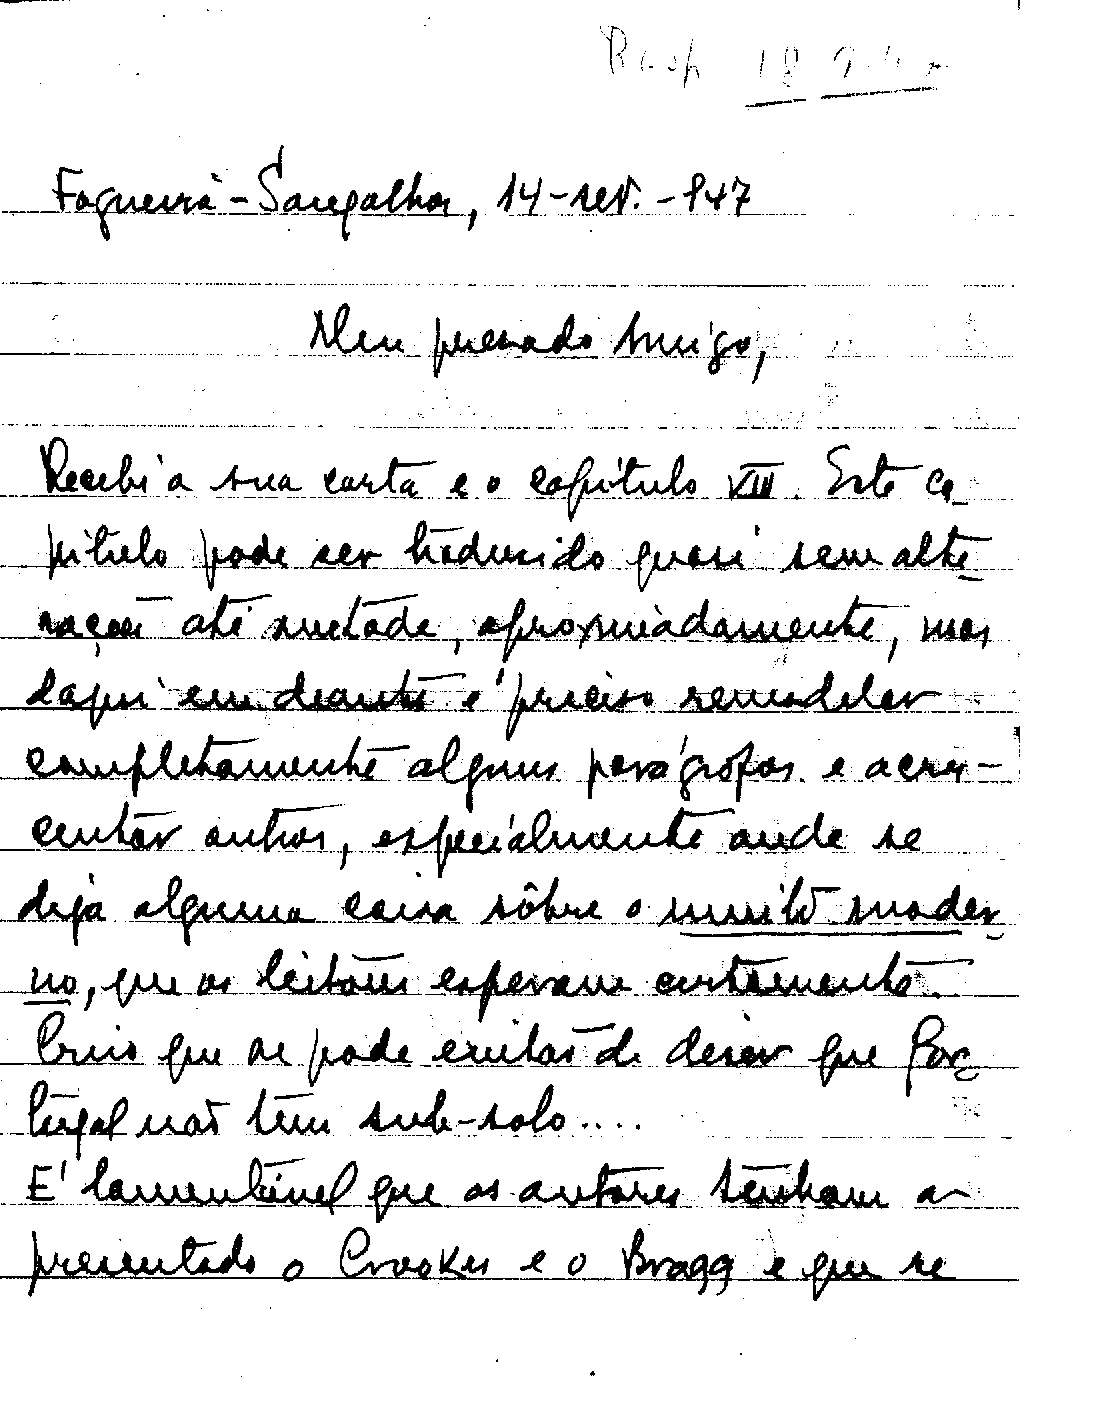 Resp 18
Fogueira-Sangalhos, 14-set.-947
Meu presado Amigo,
Recebi a sua carta e o capítulo VIII. Este ca-
pítulo pode ser traduzido quasi sem alte-
rações até metade, aproximadamente, mas
daqui em deante é preciso remodelar
completamente alguns parágrafos e acres-
centar outros, especialmente onde se
diga alguma coisa sôbre o muito moder-
no, que os leitores esperam certamente.
Creio que se pode evitar de dizer que Por-
tugal não tem sub-solo....
E' lamentável que os autores tenham a-
presentado o Crookes e o Bragg e que se